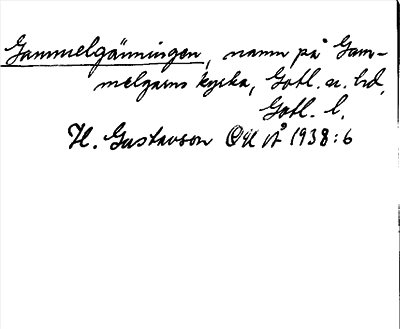 Gammelgänningen, namn på Gam-
melgarns kyrka, Gotl. n. hd,
Gotl. l.
H. Gustavson OÄ Å 1938:6